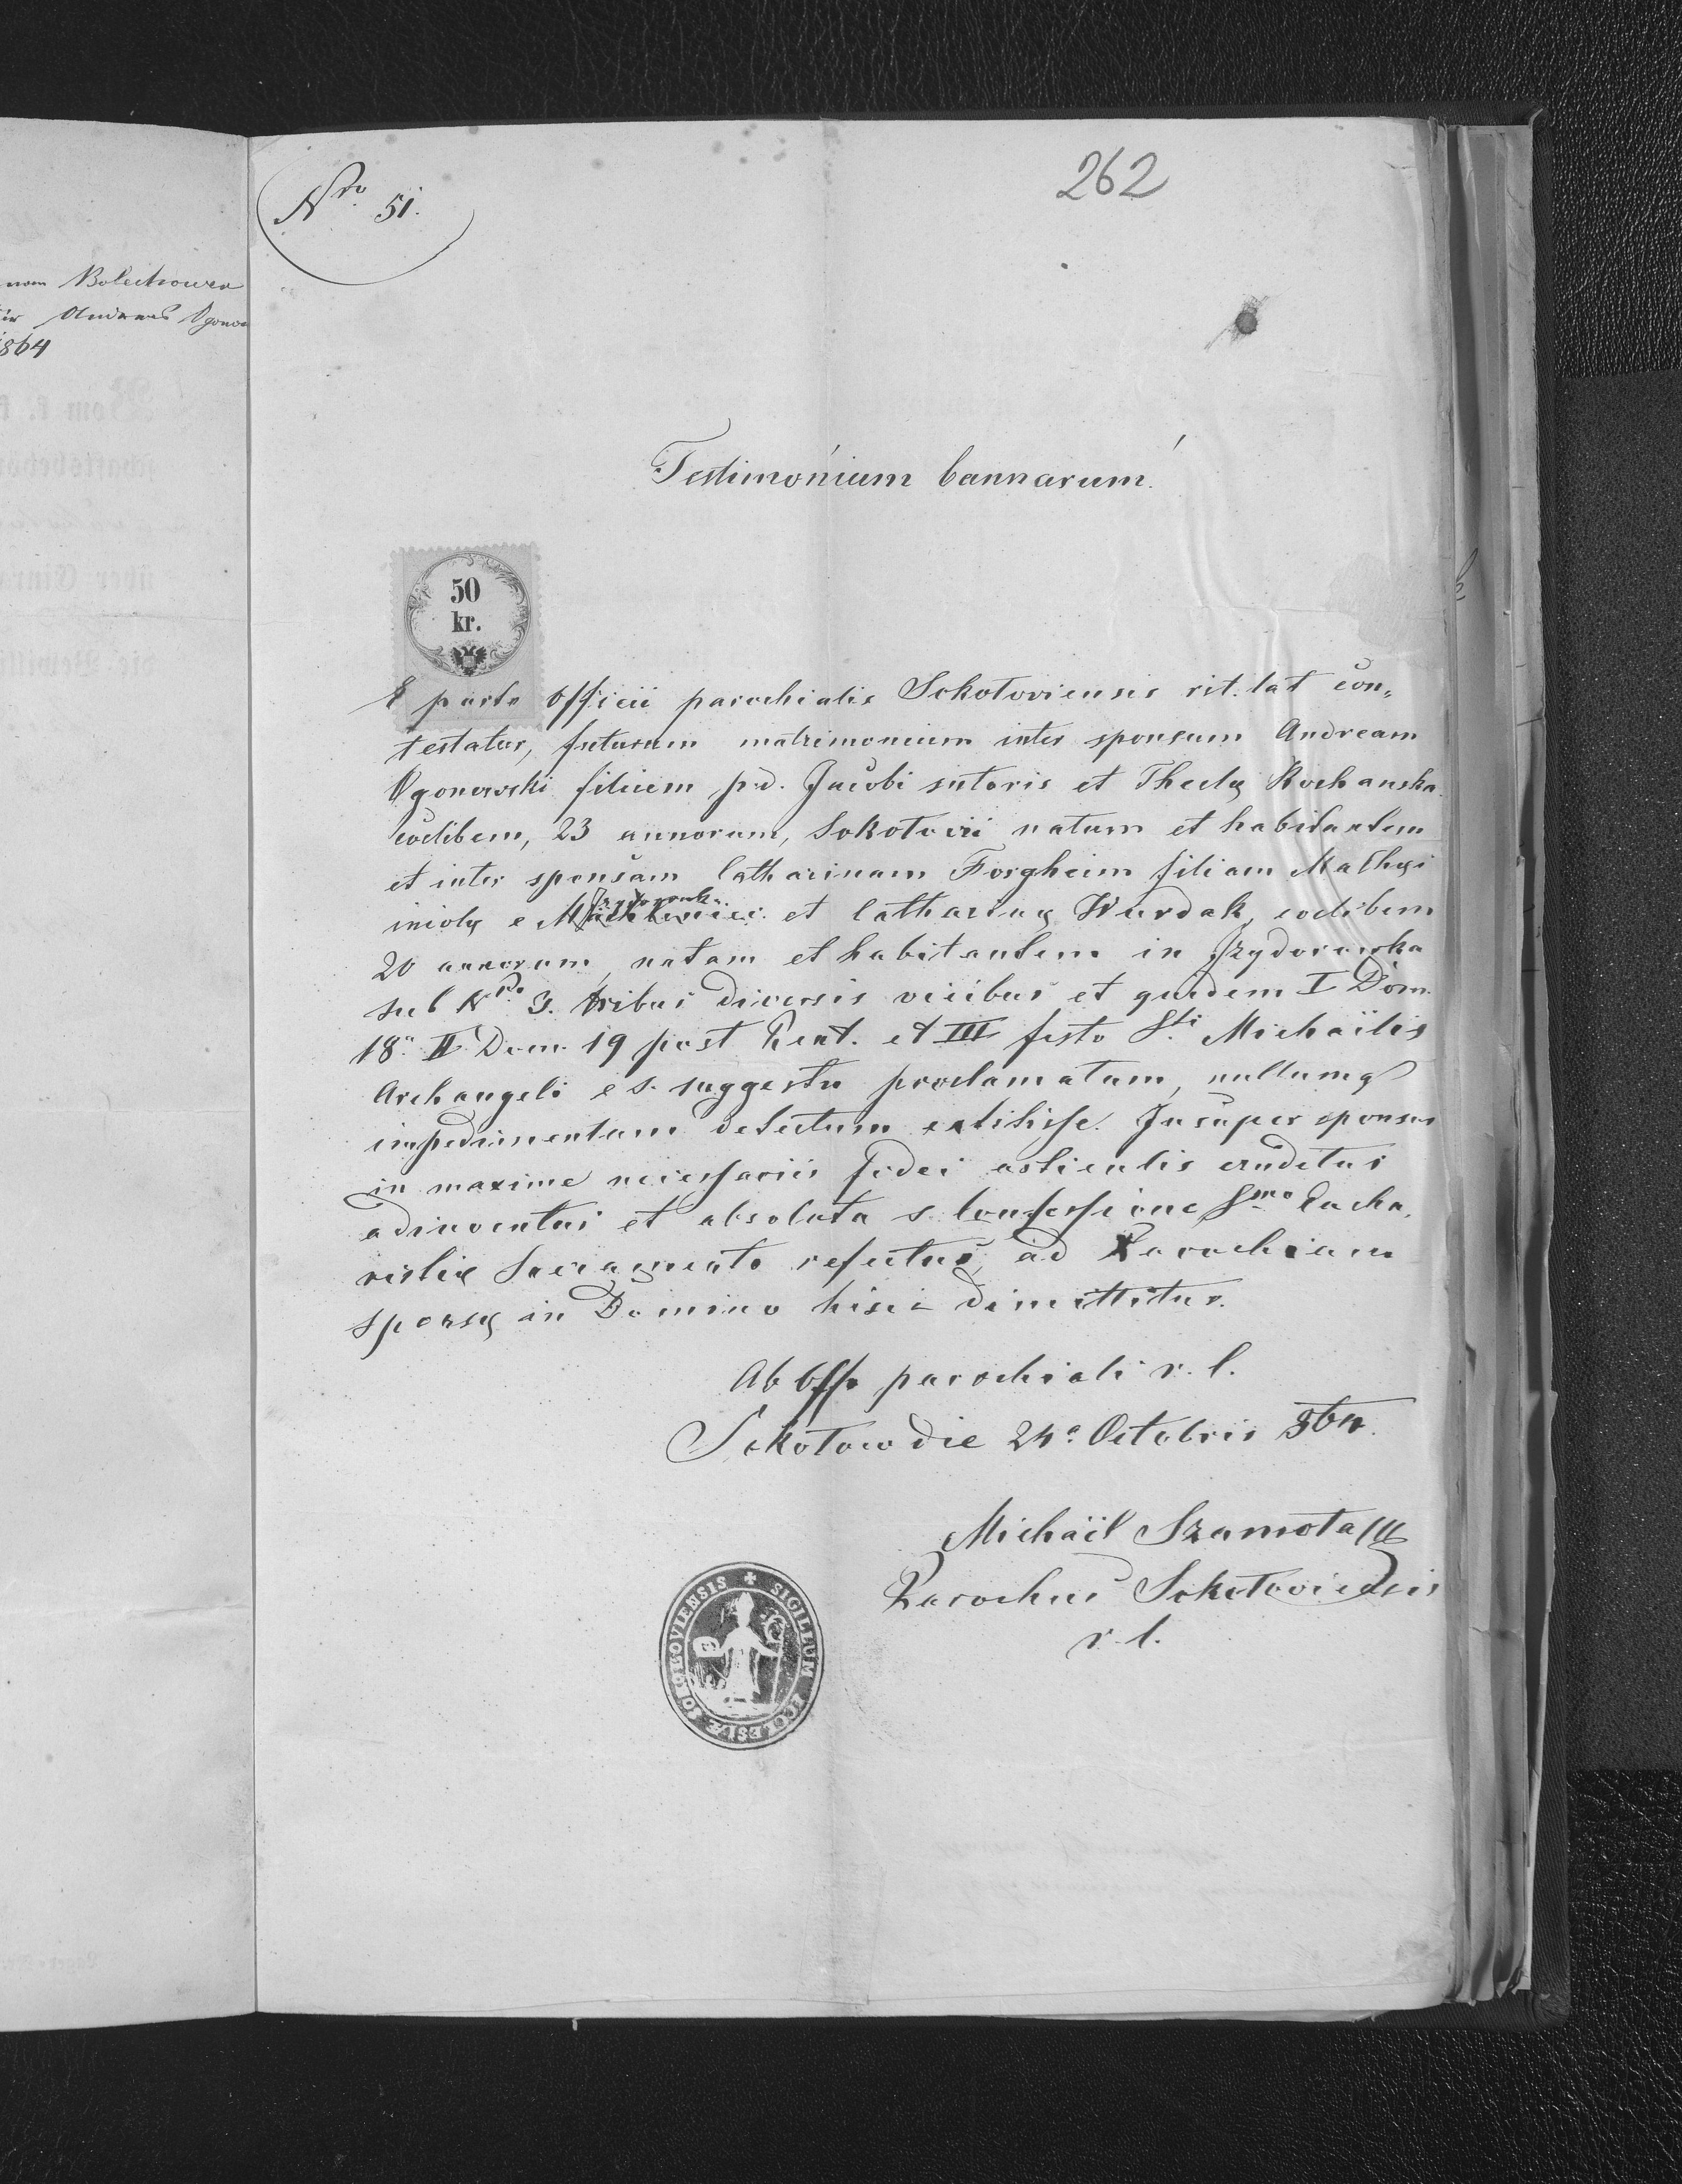 nom Bolechower
Andreas Ogonow
1864
Nro 51.
262
Testimonium bannarum.
50
kr.
E parte officii parochialis Sokołoviensis rit. lat con„
testatur, futurum matrimonium inter sponsum Andream
Ogonowski filium p.d. Jacobi sutoris et Theclę Kochanska
coelibem, 23 annorum, Sokołovii natum et habitantem
et inter sponsam Catharinam Forgheim filiam Mathęi
Izydorowka
incolę e et Catharinę Wurdak, coelibem
20 annorum, natam et habitantem in Izydorowka
sub Nro 3. tribus diversis vicibus et quidem I Dom.
18. II Dom. 19 post Pent. et III festo Sti Michaïlis
Archangeli e s. suggestu proclamatum, nullumq
impedimentum detectum extitisse. Insuper sponsus
in maxime necessariis fidei articulis eruditus
adinventus et absoluta s. Confessione Smo Eucha„
ristię Sacramento refectus, ad Parochiam
sponsę in Domino hisce dimittitur.
Ab offo parochiali r. l.
Sokołow die 24a Octobris 864.
Michaël Szamota
Parochus Sokołoviensis
r. l.
SIGILLUM ECCLESIÆ SOKOŁOVIENSIS